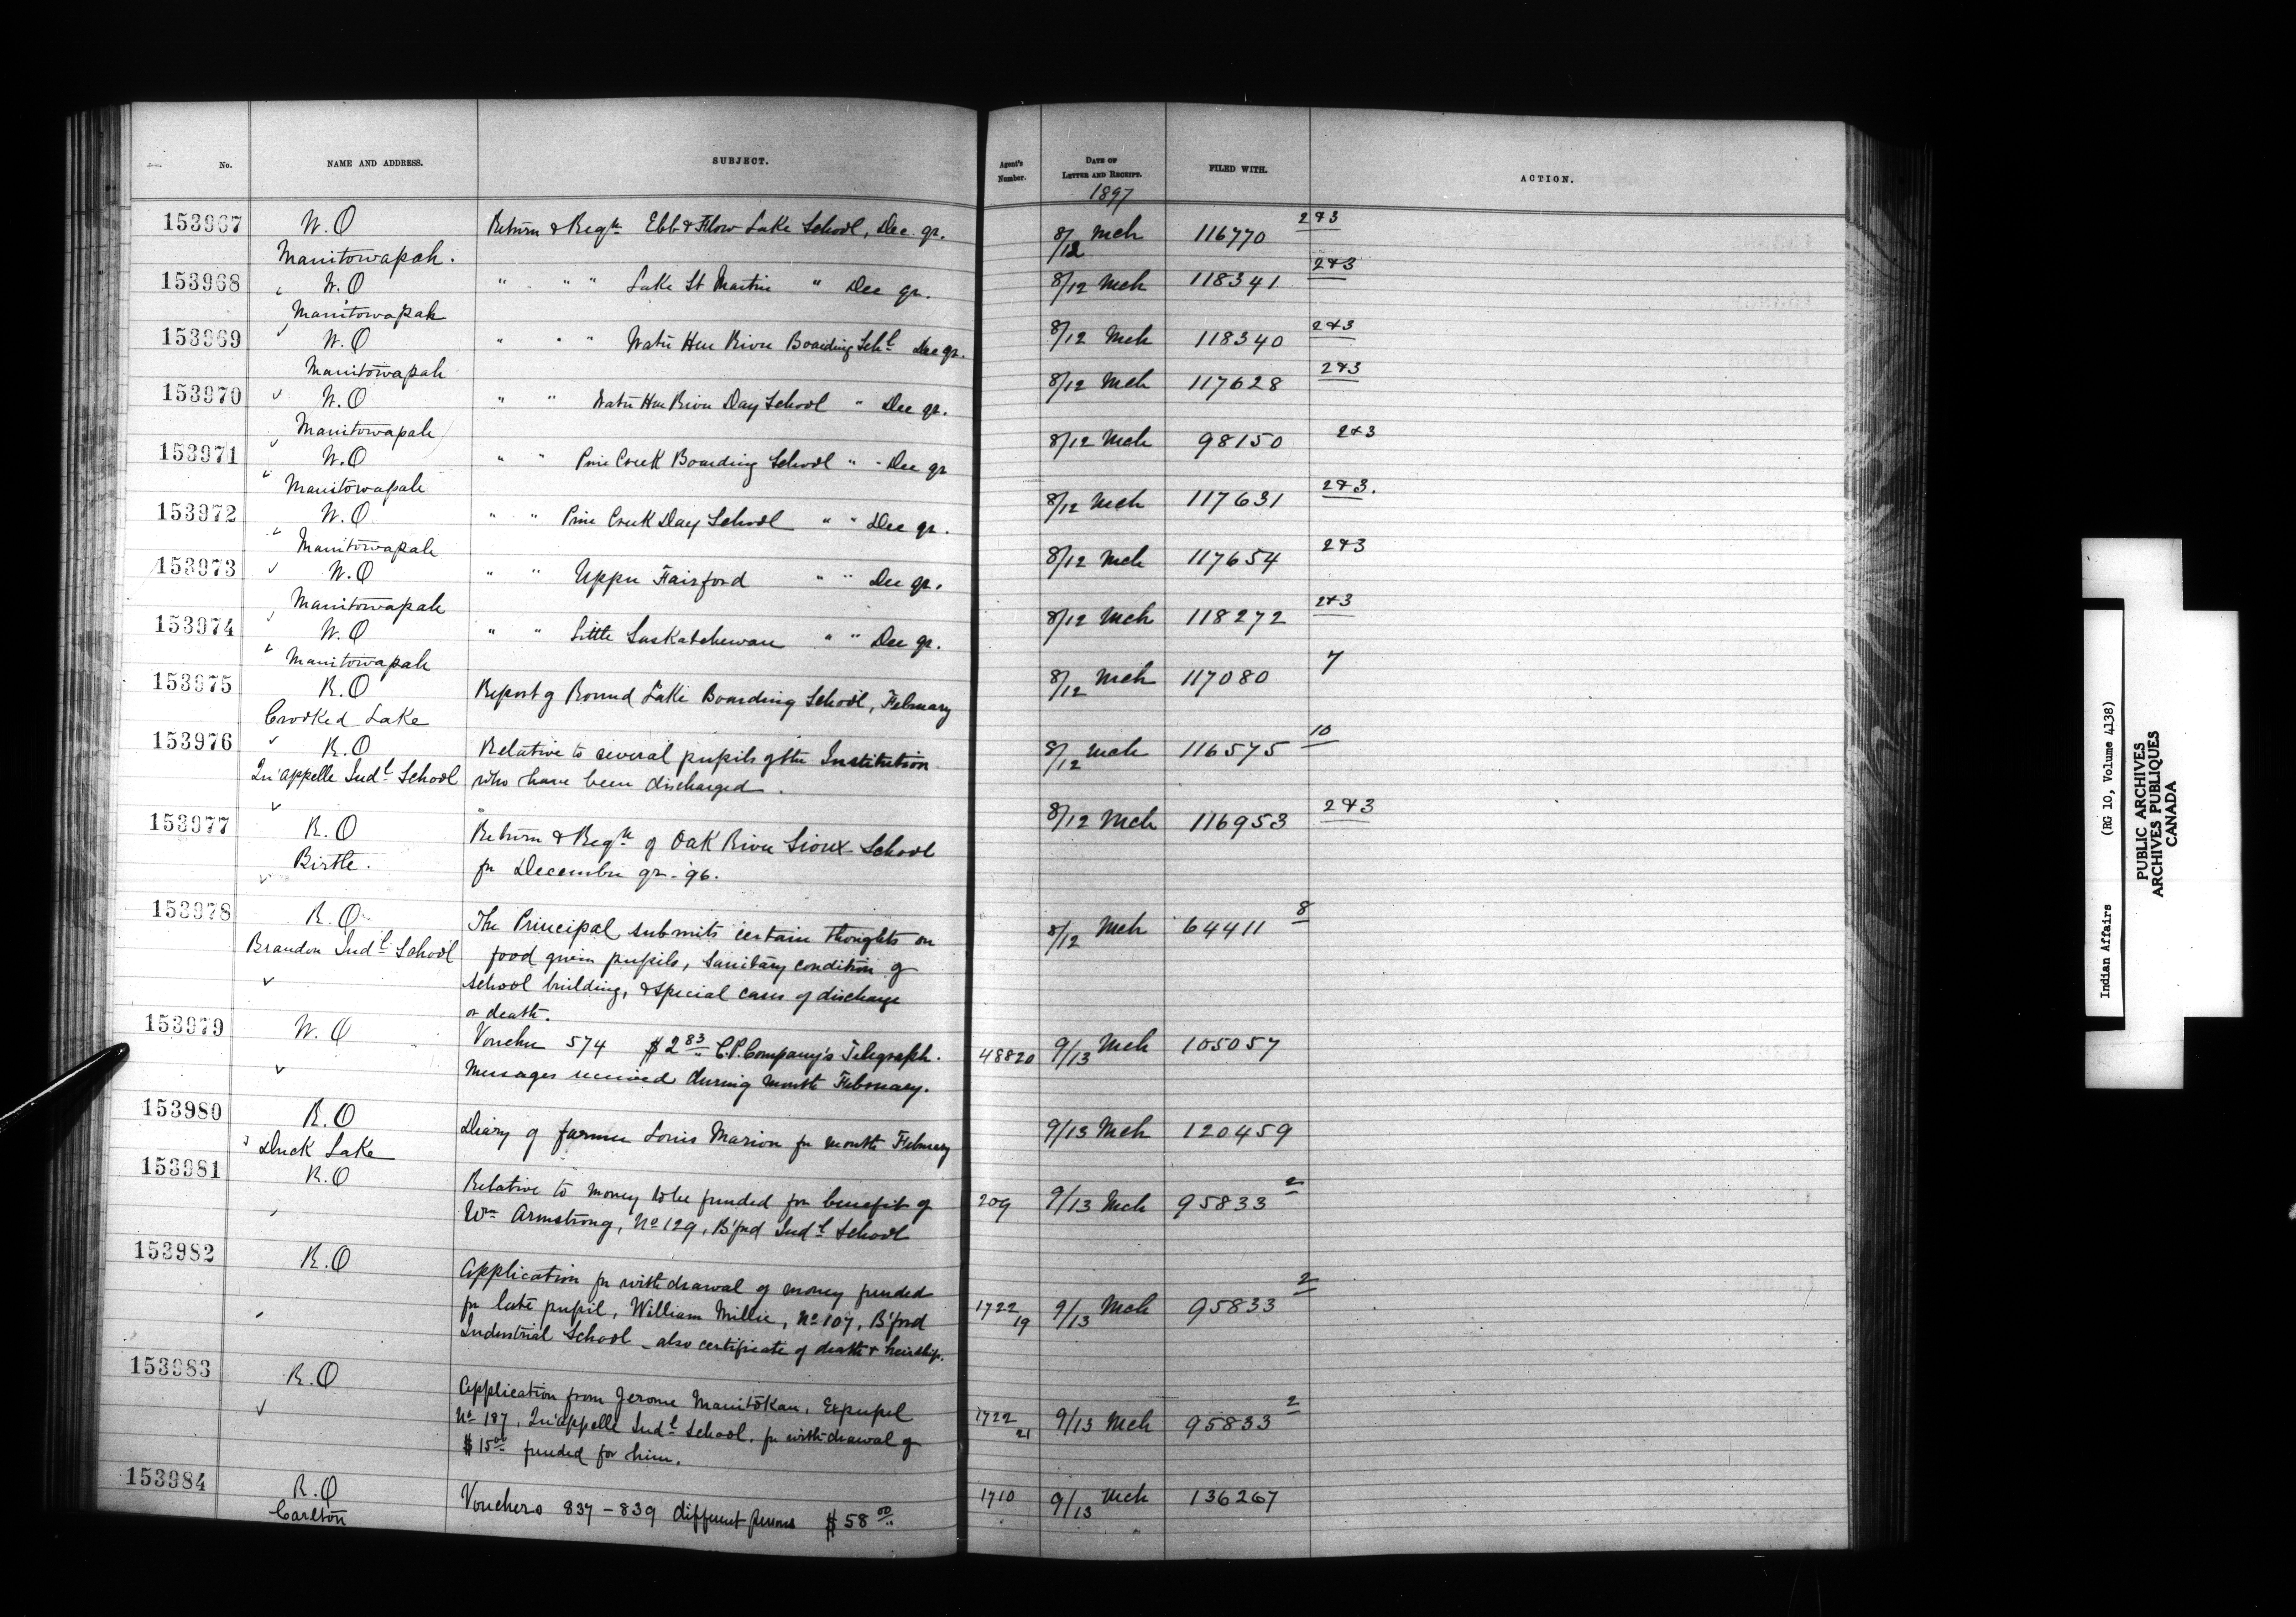 No. NAME AND ADDRESS. SUBJECT. Agent's Number. DATE OF LETTER AND RECEIPT. FILED WITH. ACTION.
1897
153967 W.O Return & Reqn Ebb & Flow Lake School, Dec. qr. 8/12 Mch 116770 2&3
Manitowapah.
153968 W.O " " " Lake St Martin " Dec qr. 8/12 Mch 118341 2&3
Manitowapah
153969 W.O " " " Water Hen River Boarding Schl Dec qr. 8/12 Mch 118340 2&3
Manitowapah
153970 W.O " " Water Hen River Day School " Dec qr. 8/12 Mch 117628 2&3
Manitowapah
153971 W.O " " Pine Creek Boarding School " " Dec qr 8/12 Mch 98150 2&3
Manitowapah
153972 W.O " " Pine Creek Day School " " Dec qr. 8/12 Mch 117631 2&3.
Manitowapah
153973 W.O " " Upper Fairford " " Dec qr. 8/12 Mch 117654 2&3
Manitowapah
153974 W.O " " Little Saskatchewan " " Dec qr. 8/12 Mch 118272 2&3
Manitowapah
153975 R.O Report of Round Lake Boarding School, February 8/12 Mch 117080 7
Crooked Lake
153976 R.O Relative to several pupils of the Institution 8/12 Mch 116575 10
Qu'appelle Indl School who have been discharged.
153977 R.O Return & Reqn of Oak River Sioux School 8/12 Mch 116953 2&3
Birtle. for December qr. 96.
153978 R.O The Principal submits certain thoughts on 8/12 Mch 64411 8
Brandon Indl School food given pupils, sanitary condition of
school building, & special cases of discharge
or death.
153979 W.O Voucher 574 $2.83 C.P. Company's Telegraph. 48820 9/13 Mch 105057
Messages received during month February.
153980 R.O Diary of farmer Louis Marion for month February 9/13 Mch 120459
Duck Lake
153981 R.O Relative to money to be funded for benefit of 209 9/13 Mch 95833 2
Wm Armstrong, No 129, B'ford Indl School
153982 R.O Application for withdrawal of money funded
for late pupil, William Millie, No 107, B'ford 1722/19 9/13 Mch 95833 2
Industrial School - also certificate of death & heirship.
153983 R.O Application from Jerome Manitokan, Expupil
No 187, Qu'appelle Indl School, for withdrawal of 1722/21 9/13 Mch 95833 2
$15.00 funded for him.
153984 R.O Vouchers 837 - 839 different persons $58.00 1710 9/13 Mch 136267
Carlton
Indian Affairs (RG 10, Volume 4138)
PUBLIC ARCHIVES
ARCHIVES PUBLIQUES
CANADA